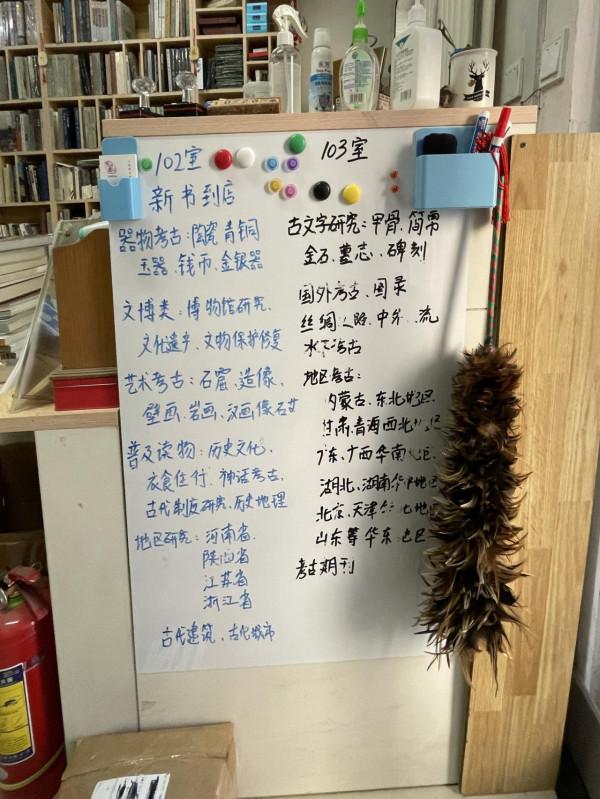 102室
新书到店
器物考古：陶瓷 青铜
玉器、钱币、金银器
文博类：博物馆研究、
文化遗产、文物保护修复
艺术考古：石窟、造像、
壁画、岩画、汉画像石
普及读物：历史文化、
衣食住行、神话考古、
古代制度研究、历史地理
地区研究：河南省、
陕西省
江苏省
浙江省
古代建筑、古代城市
103室
古文字研究：甲骨、简帛
金石、墓志、碑刻
国外考古、图录
丝绸 路、中外 流
水下考古
地区考古：
内蒙古、东北 区
甘肃、青海 西北 区
广东、广西 华南 区
湖北、湖南 华中地区
北京、天津 地区
山东等 华东 区
考古期刊